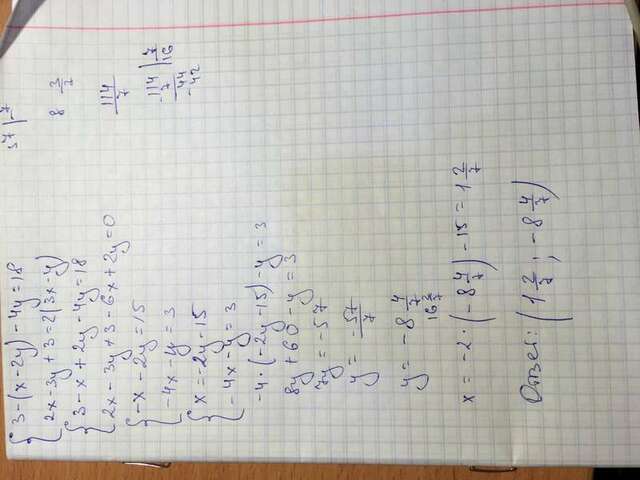 { 3-(x-2y)-4y=18
2x-3y+3=2(3x-y)
{ 3-x+2y-4y=18
2x-3y+3-6x+2y=0
{ -x-2y=15
-4x-y=3
{ x=-2y-15
-4x-y=3
-4·(-2y-15)-y=3
8y+60-y=3
7y=-57
y= -57/7
y= -8 4/7
16 2/7
x= -2·(-8 4/7)-15=1 2/7
Ответ: (1 2/7; -8 4/7)
57|7
114/7
-114|7
7 16
44
-42